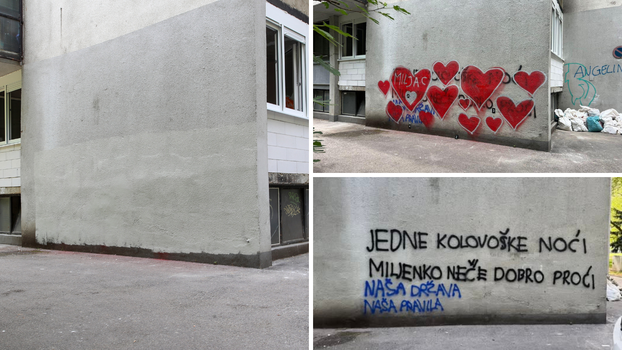 MILJAC
ANGELIN
JEDNE KOLOVOŠKE NOĆI
MILJENKO NEČE DOBRO PROĆI
NAŠA DRŽAVA
NAŠA PRAVILA